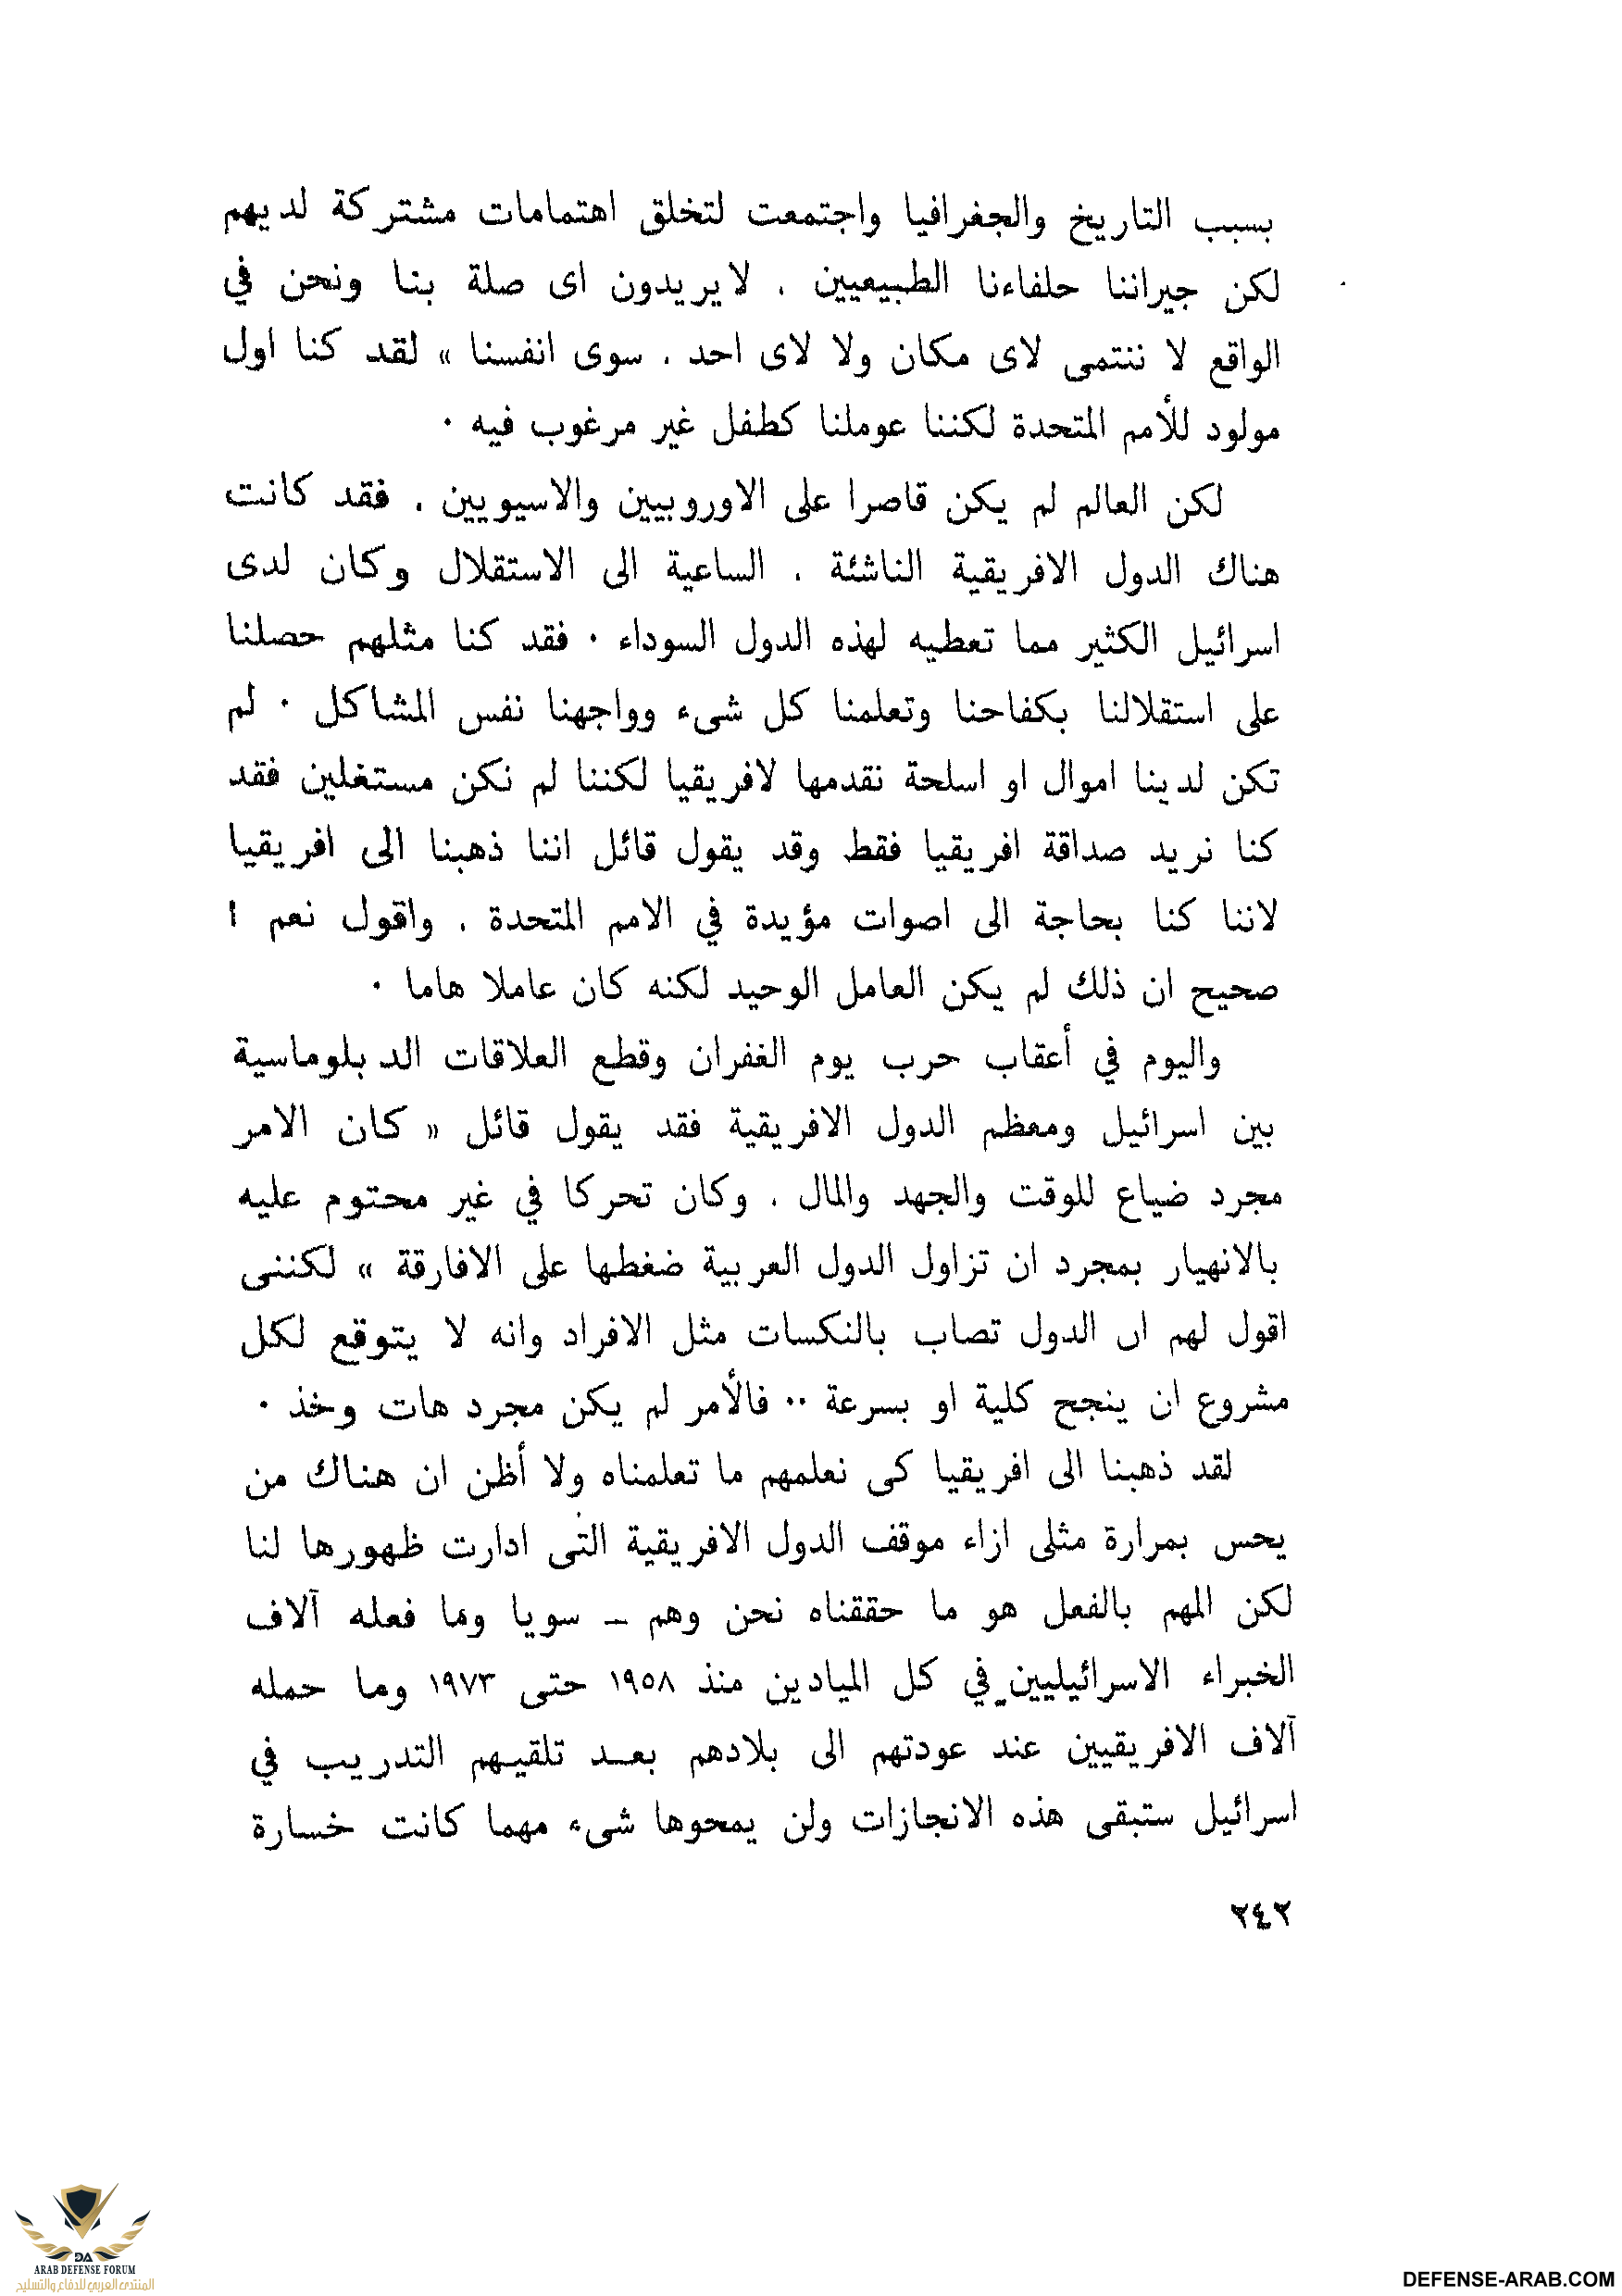 بسبب التاريخ والجغرافيا واجتمعت لتخلق اهتمامات مشتركة لديهم
لكن جيراننا حلفاءنا الطبيعيين . لايريدون اى صلة بنا ونحن في
الواقع لا ننتمى لاى مكان ولا لاى احد . سوى انفسنا » لقد كنا اول
مولود للأمم المتحدة لكننا عوملنا كطفل غير مرغوب فيه ٠
لكن العالم لم يكن قاصرا على الاوروبيين والاسيويين . فقد كانت
هناك الدول الافريقية الناشئة . الساعية الى الاستقلال وكان لدى
اسرائيل الكثير مما تعطيه لهذه الدول السوداء ٠ فقد كنا مثلهم حصلنا
على استقلالنا بكفاحنا وتعلمنا كل شىء وواجهنا نفس المشاكل ٠ لم
تكن لدينا اموال او اسلحة نقدمها لافريقيا لكننا لم نكن مستغلين فقد
كنا نريد صداقة افريقيا فقط وقد يقول قائل اننا ذهبنا الى افريقيا
لاننا كنا بحاجة الى اصوات مؤيدة في الامم المتحدة . واقول نعم !
صحيح ان ذلك لم يكن العامل الوحيد لكنه كان عاملا هاما ٠
واليوم في أعقاب حرب يوم الغفران وقطع العلاقات الدبلوماسية
بين اسرائيل ومعظم الدول الافريقية فقد يقول قائل « كان الامر
مجرد ضياع للوقت والجهد والمال . وكان تحركا في غير محتوم عليه
بالانهيار بمجرد ان تزاول الدول العربية ضغطها على الافارقة » لكننى
اقول لهم ان الدول تصاب بالنكسات مثل الافراد وانه لا يتوقع لكل
مشروع ان ينجح كلية او بسرعة ٠٠ فالأمر لم يكن مجرد هات وخذ ٠
لقد ذهبنا الى افريقيا كى نعلمهم ما تعلمناه ولا أظن ان هناك من
يحس بمرارة مثلى ازاء موقف الدول الافريقية التى ادارت ظهورها لنا
لكن المهم بالفعل هو ما حققناه نحن وهم ــ سويا وما فعله آلاف
الخبراء الاسرائيليين في كل الميادين منذ ١٩٥٨ حتى ١٩٧٣ وما حمله
آلاف الافريقيين عند عودتهم الى بلادهم بعـد تلقيهم التدريب في
اسرائيل ستبقى هذه الانجازات ولن يمحوها شىء مهما كانت خسارة
٢٤٢
DA
ARAB DEFENSE FORUM
المنتدى العربي للدفاع والتسليح
DEFENSE-ARAB.COM